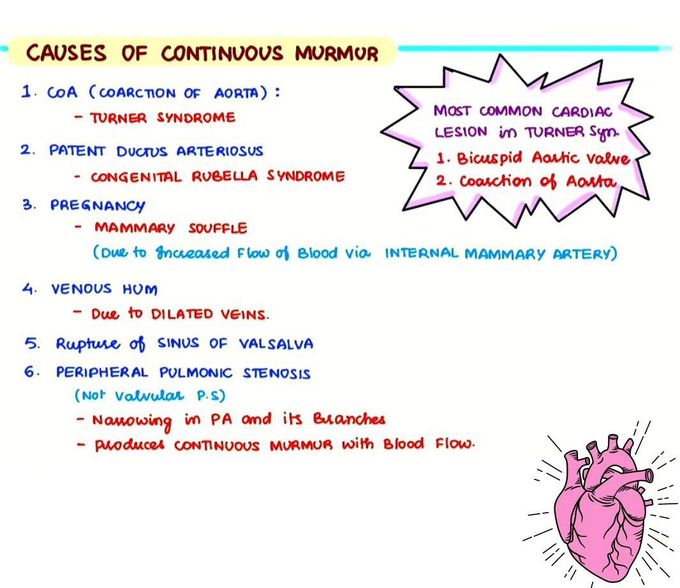 CAUSES OF CONTINUOUS MURMUR
1. COA (COARCTION OF AORTA) :
- TURNER SYNDROME
2. PATENT DUCTUS ARTERIOSUS
- CONGENITAL RUBELLA SYNDROME
3. PREGNANCY
- MAMMARY SOUFFLE
(Due to Increased Flow of Blood via INTERNAL MAMMARY ARTERY)
4. VENOUS HUM
- Due to DILATED VEINS.
5. Rupture of SINUS OF VALSALVA
6. PERIPHERAL PULMONIC STENOSIS
(Not Valvular P.S)
- Narrowing in PA and its Branches
- Produces CONTINUOUS MURMUR with Blood Flow.
MOST COMMON CARDIAC
LESION in TURNER Syn.
1. Bicuspid Aortic Valve
2. Coarction of Aorta